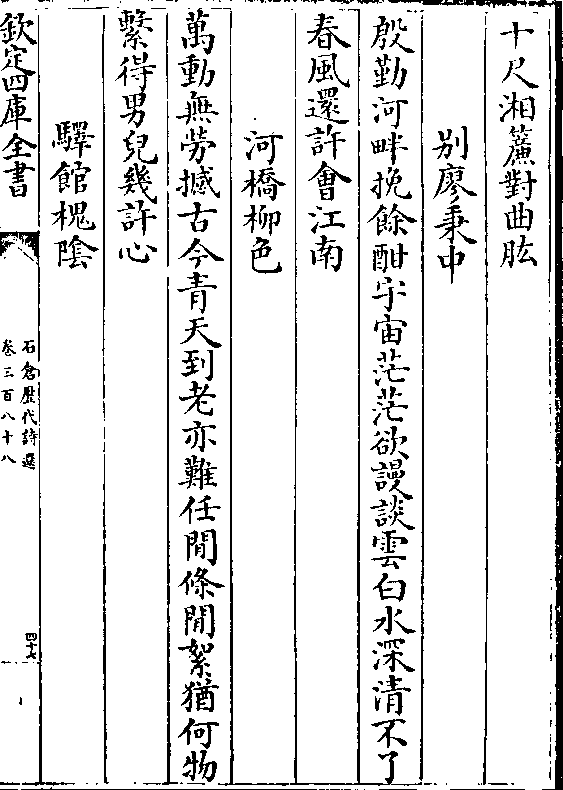 十尺湘簾對曲肱
別廖秉中
殷勤河畔挽餘酣宇宙茫茫欲謾談雲白水深清不了
春風還許會江南
河橋柳色
萬動無勞撼古今青天到老亦難任閒條閒絮猶何物
繫得男兒幾許心
驛館槐陰
欽定四庫全書
石倉歷代詩選
卷三百八十八
四十七